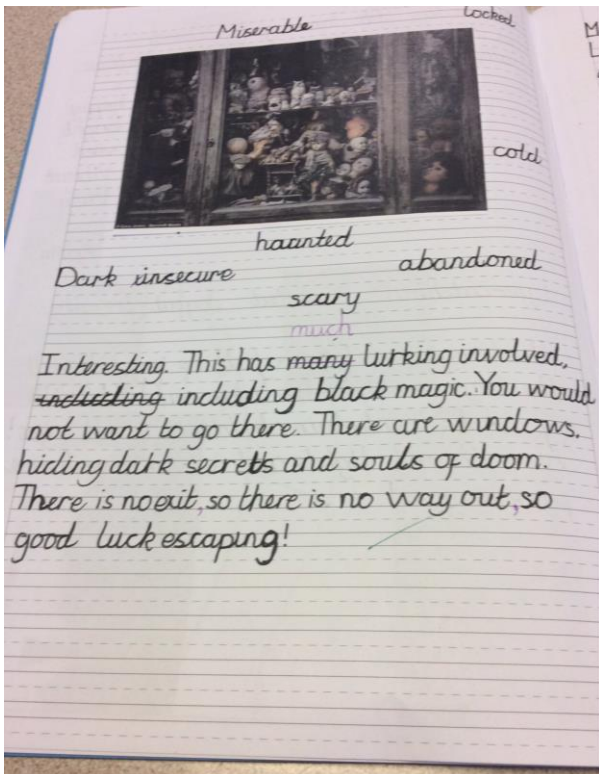 Locked
Miserable
cold
haunted
abandoned
Dark insecure
scary
much
Interesting. This has many lurking involved,
including including black magic. You would
not want to go there. There are windows,
hiding dark secrets and souls of doom.
There is no exit, so there is no way out, so
good luck escaping!
M
L